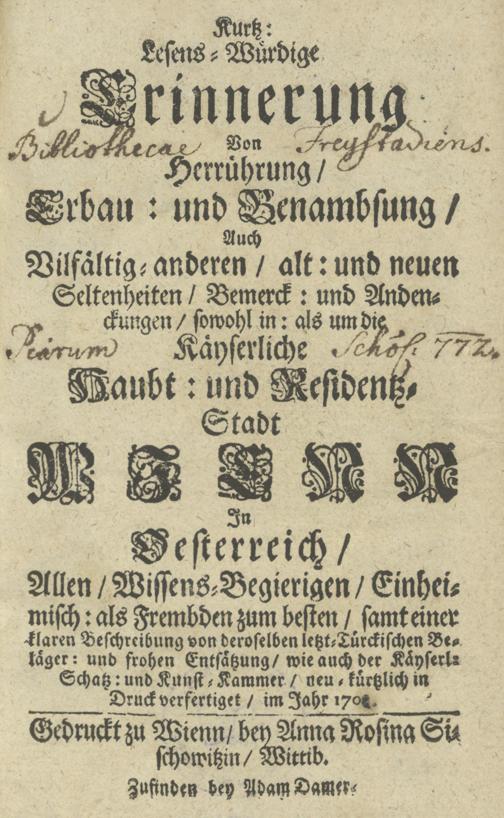 Kurtz:
Lesens-Würdige
Erinnerung
Von
Bibliothecae Freystadiens.
Herrührung /
Erbau: und Benambsung /
Auch
Vilfältig-anderen / alt: und neuen
Seltenheiten / Bemerck: und Anden-
ckungen / sowohl in: als um die
Piarum Käyserliche Schol: 772.
Haubt: und Residentz-
Stadt
WIENN
In
Oesterreich /
Allen / Wissens-Begierigen / Einhei-
misch: als Frembden zum besten / samt einer
klaren Beschreibung von deroselben letzt-Türckischen Be-
läger: und frohen Entsätzung / wie auch der Käyserl:
Schatz: und Kunst-Kammer / neu-kürtzlich in
Druck verfertiget / im Jahr
Gedruckt zu Wienn / bey Anna Rosina Si-
schowitzin / Wittib.
Zufinden bey Adam Damer-